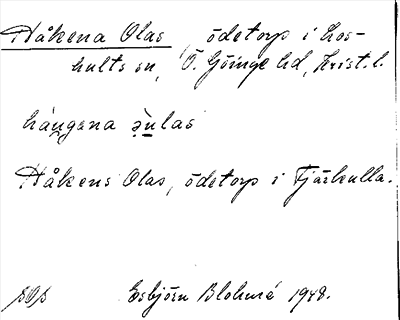 Håkena Olas, ödetorp i Los-
hults sn, Ö. Göinge hd, Krist. l.
håu̯gena ə̀ulas
Håkens Olas, ödetorp i Fjärkulla.
Esbjörn Blohmé 1948.